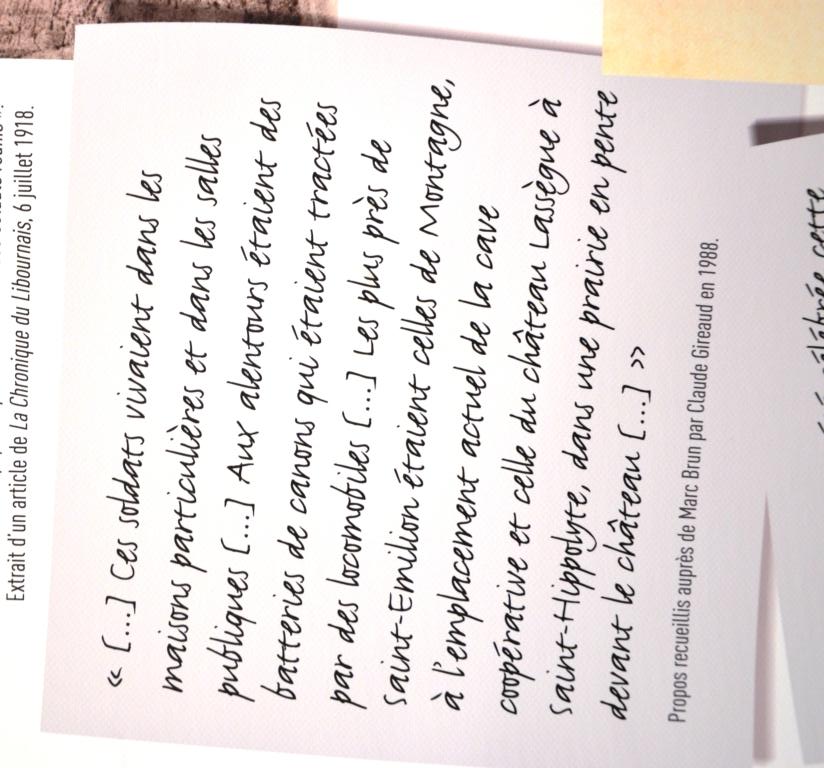 Extrait d'un article de La Chronique du Libournais, 6 juillet 1918.
« [...] Ces soldats vivaient dans les
maisons particulières et dans les salles
publiques [...] Aux alentours étaient des
batteries de canons qui étaient tractées
par des locomobiles [...] Les plus près de
Saint-Emilion étaient celles de Montagne,
à l'emplacement actuel de la cave
coopérative et celle du château Lassègue à
Saint-Hippolyte, dans une prairie en pente
devant le château [...] »
Propos recueillis auprès de Marc Brun par Claude Gireaud en 1988.
cette